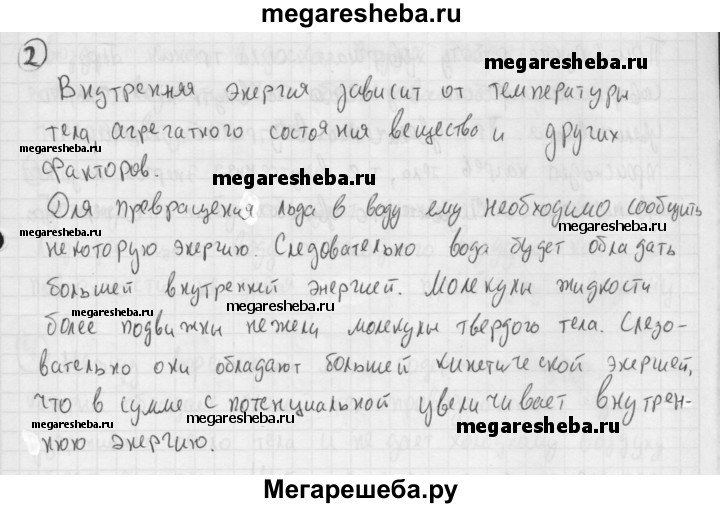 megaresheba.ru
2
megaresheba.ru
Внутренняя энергия зависит от температуры
тела, агрегатного состояния вещество и других
факторов.
megaresheba.ru
megaresheba.ru
megaresheba.ru
Для превращения льда в воду ему необходимо сообщить
некоторую энергию. Следовательно вода будет обладать
большей внутренней энергией. Молекулы жидкости
megaresheba.ru
megaresheba.ru
более подвижны нежели молекулы твердого тела. Следо-
вательно они обладают большей кинетической энергией,
что в сумме с потенциальной увеличивает внутрен-
нюю энергию.
megaresheba.ru
megaresheba.ru
Мегарешеба.ру